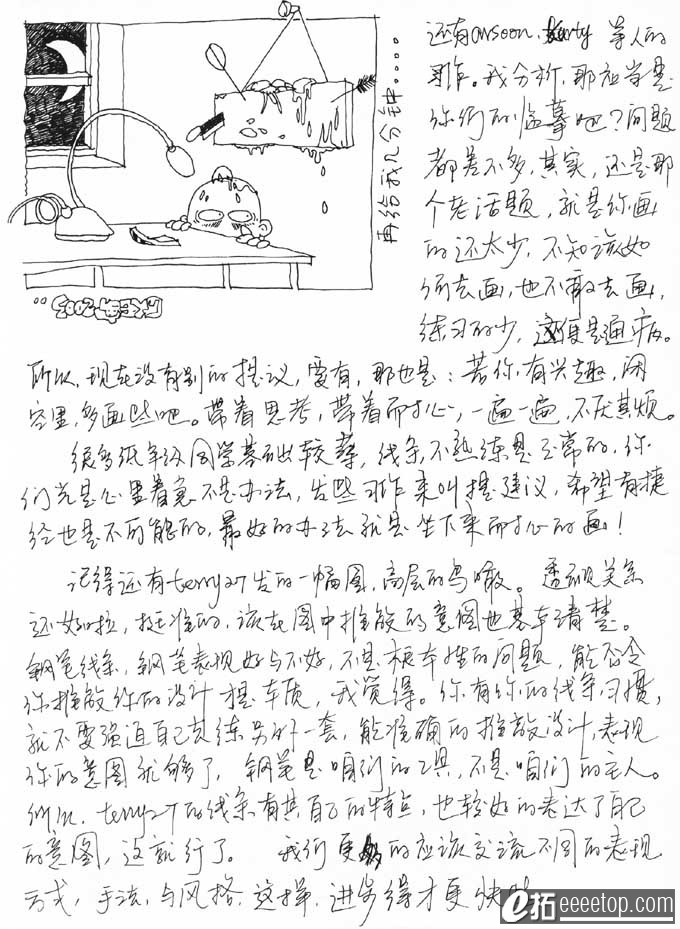 再给我几分钟....
还有onsoon, 等人的
习作。我分析,那应当是
你们的临摹吧?问题
都差不多,其实,还是那
个老话题,就是你画
的还太少,不知该如
何去画,也不敢去画,
练习的少,这便是通病。
所以,现在没有别的提议,要有,那也是:若你有兴趣,闲
客里,多画些吧。带着思考,带着耐心,一遍一遍,不厌其烦。
很多低年级同学基础较薄,线条,不熟练是正常的,你
们光是心里着急不是办法,发些习作来叫提建议,希望有捷
径也是不可能的,最好的办法就是坐下来耐心的画!
记得还有terry27发的一幅图,高层的鸟瞰。透视关系
还好啦,挺准的,该在图中推敲的意图也基本清楚。
钢笔线条,钢笔表现好与不好,不是根本性的问题,能否令
你推敲你的设计是本质,我觉得。你有你的线条习惯,
就不要强迫自己去练另外一套,能准确的推敲设计,表现
你的意图就够了,钢笔是咱们的工具,不是咱们的主人。
所以,terry27的线条有其自己的特点,也较好的表达了自己
的意图,这就行了。 我们更多的应该交流不同的表现
方式,手法,与风格,这样,进步得才更快
e拓 eeeetop.com